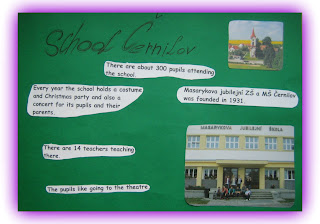 School Černilov
There are about 300 pupils attending
the school.
Every year the school holds a costume
and Christmas party and also a
concert for its pupils and their
parents.
Masarykova jubilejní ZŠ a MŠ Černilov
was founded in 1931.
MASARYKOVA JUBILEJNÍ ŠKOLA
There are 14 teachers teaching
there.
The pupils like going to the theatre